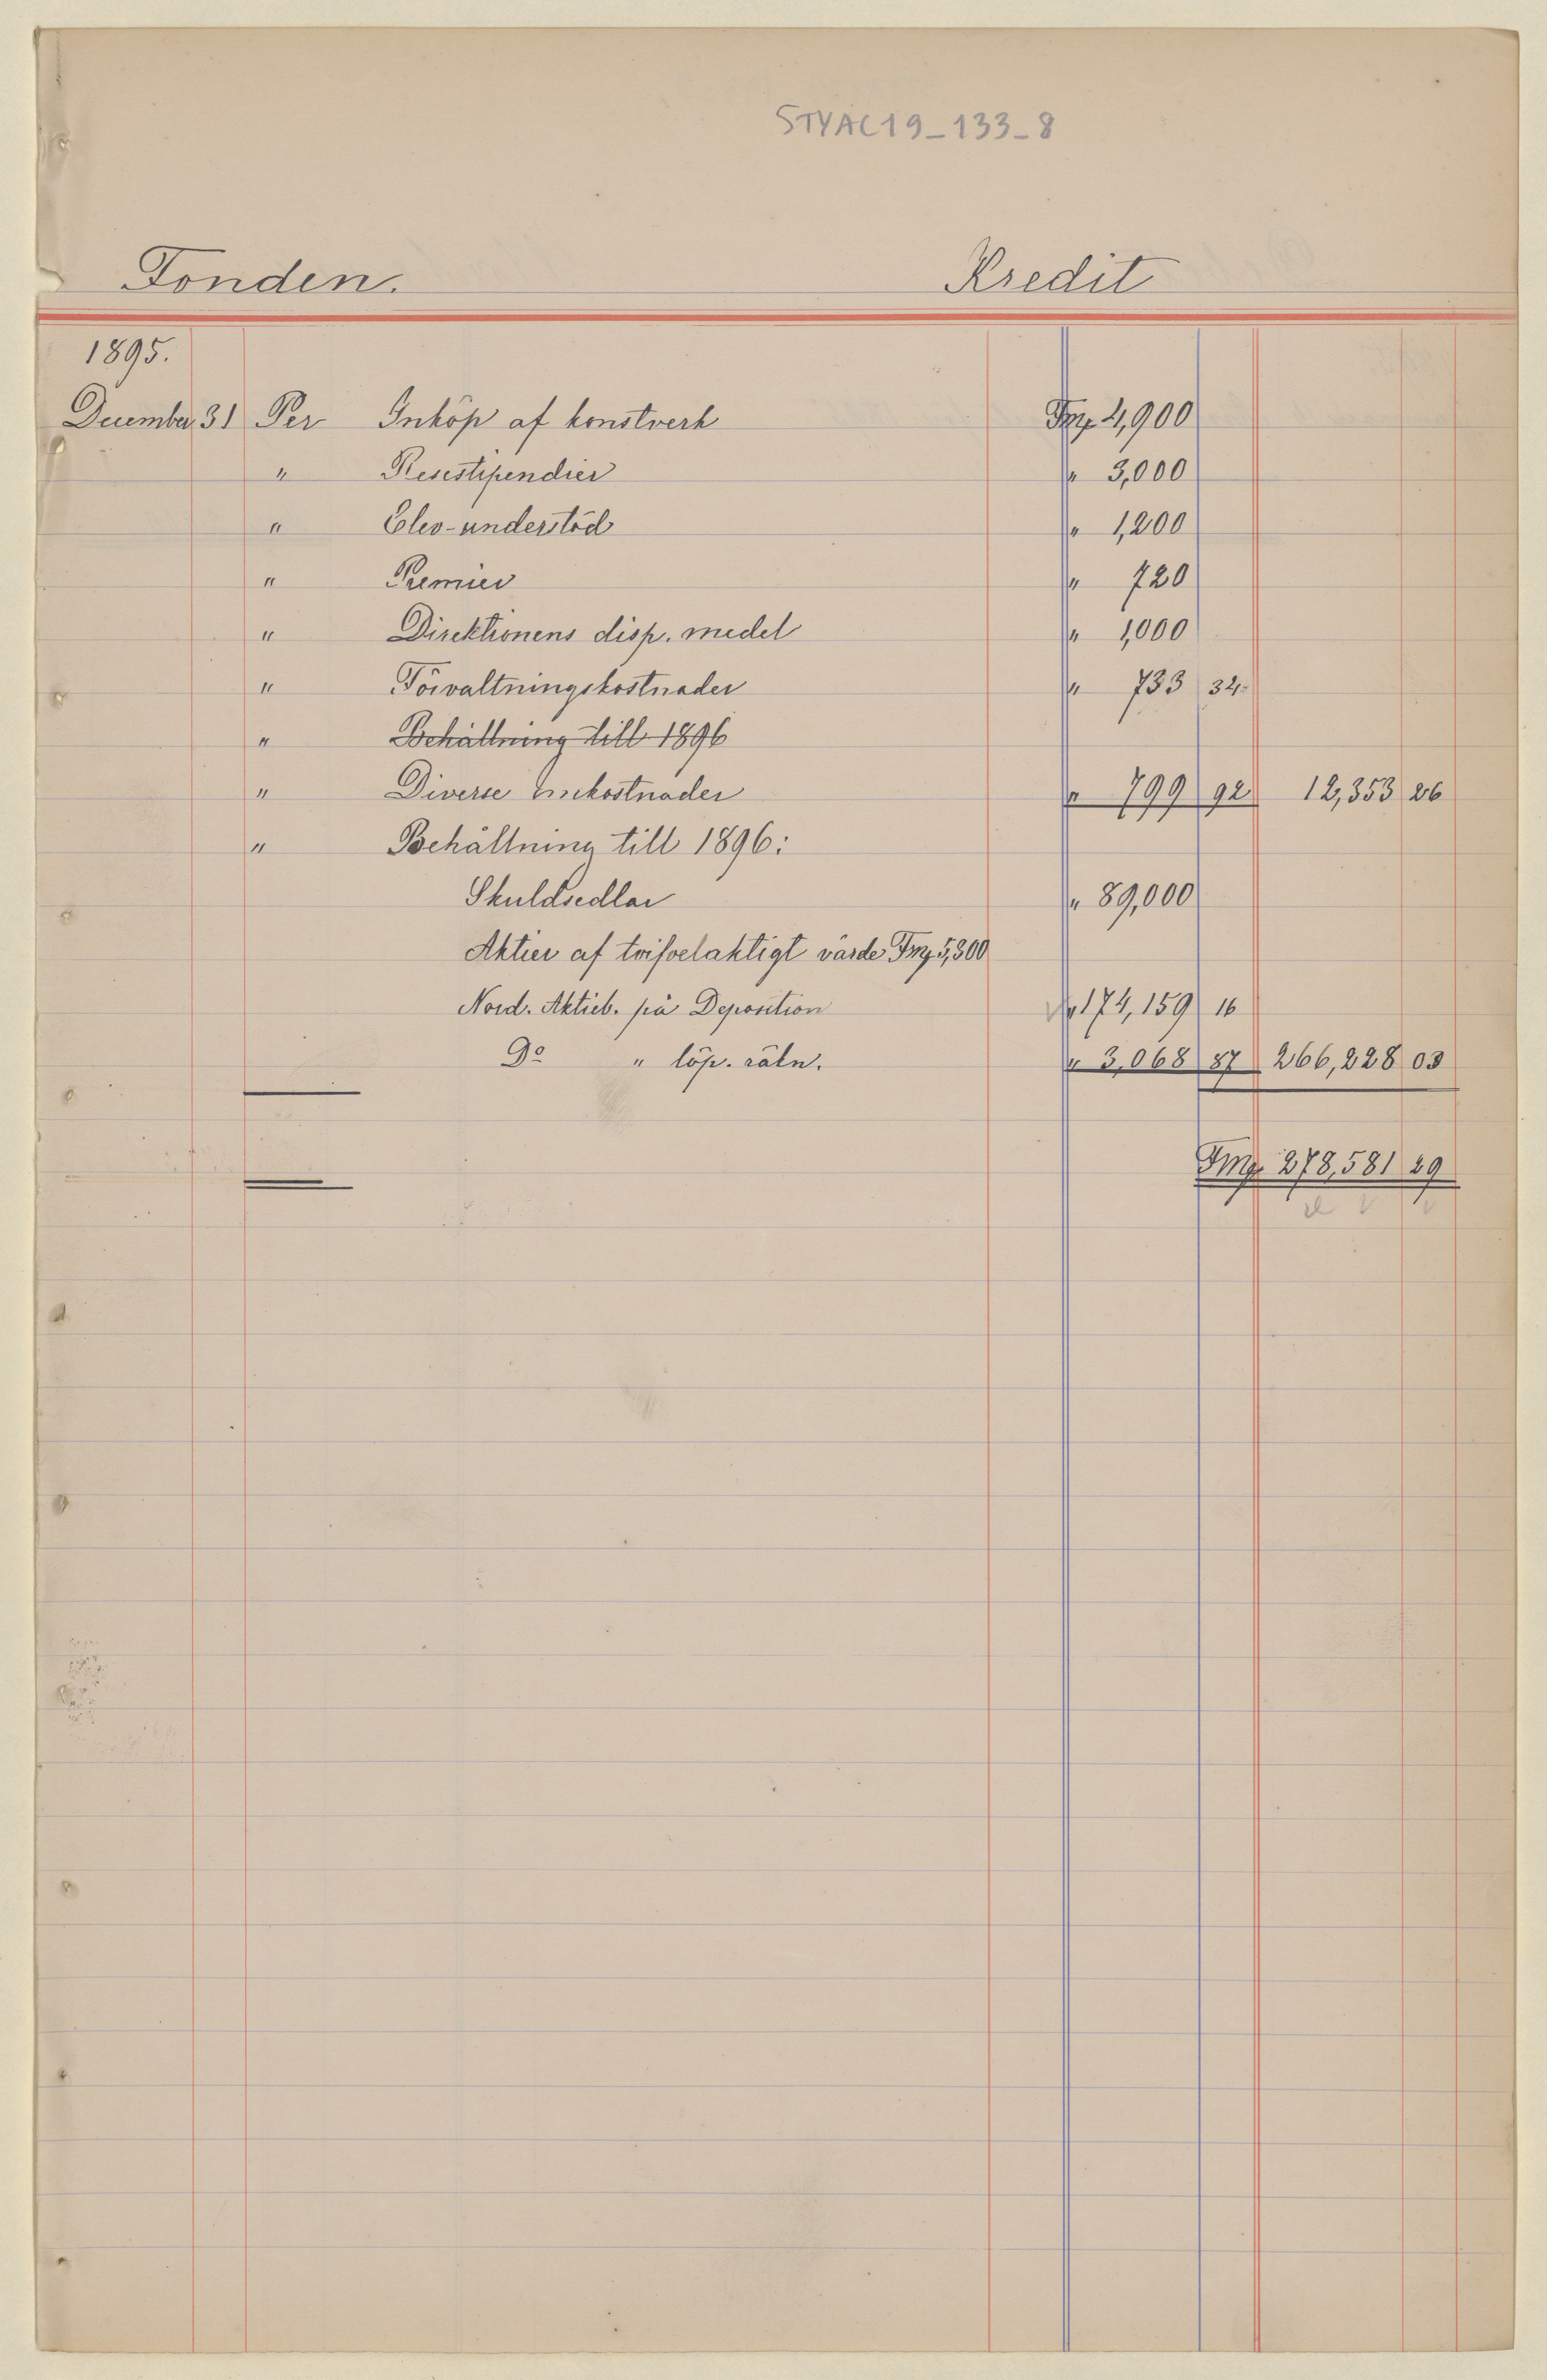 STYAC19_133_8
Fonden. Kredit
1895.
December 31 Per Inköp af konstverk Fmg 4,900
" Resestipendier " 3,000
" Elev-understöd " 1,200
" Premier " 720
" Direktionens disp. medel " 1,000
" Förvaltningskostnader " 733 34
" Behållning till 1896
" Diverse omkostnader " 799 92 12,353 26
" Behållning till 1896:
Skuldsedlar " 89,000
Aktier af tvifvelaktigt värde Fmg 5,300
Nord. Aktieb. på Deposition " 174,159 16
Do " löp. räkn. " 3,068 87 266,228 03
Fmg 278,581 29